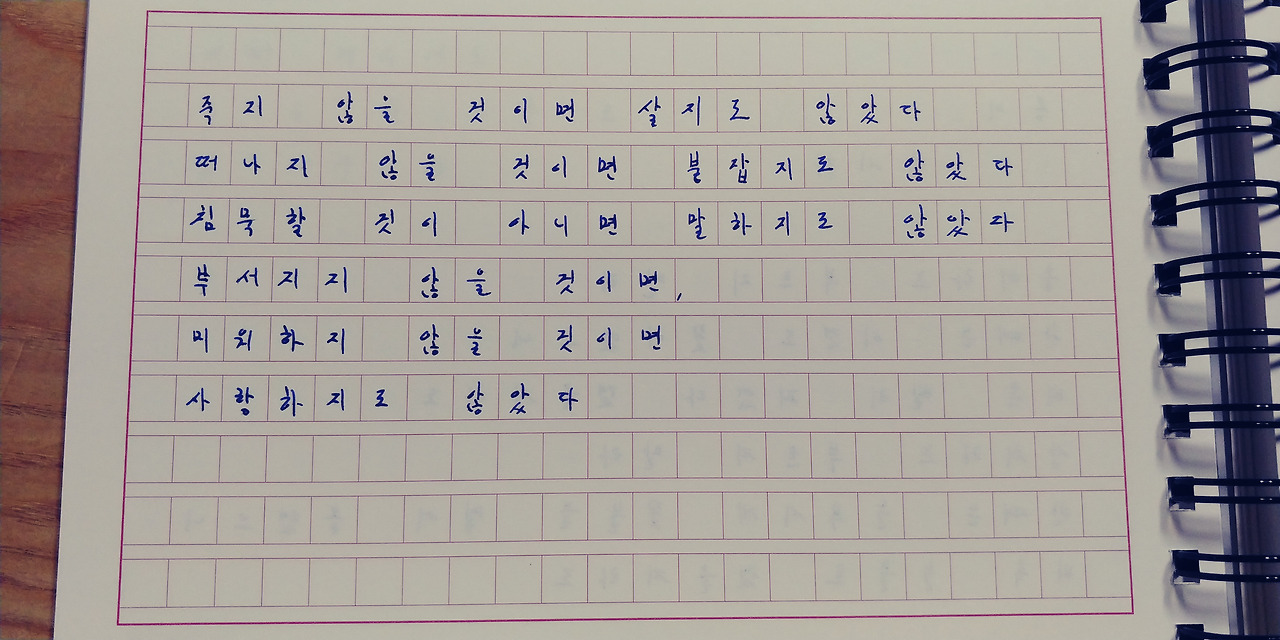 죽지 않을 것이면 살지도 않았다
떠나지 않을 것이면 붙잡지도 않았다
침묵할 것이 아니면 말하지도 않았다
부서지지 않을 것이면,
미워하지 않을 것이면
사랑하지도 않았다